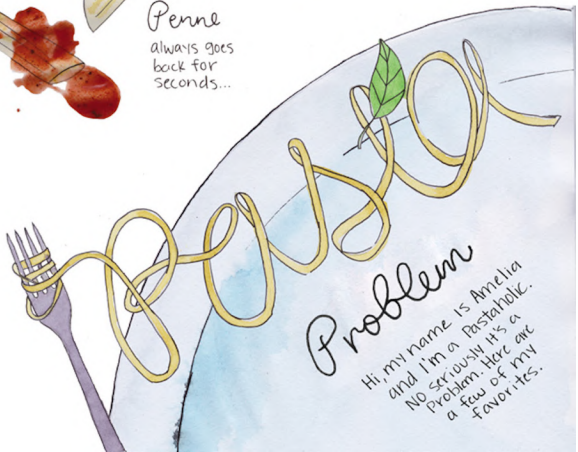 Penne
always goes
back for
seconds...
pasta
Problem
Hi, my name is Amelia
and I'm a Pastaholic.
No seriously it's a
problem. Here are
a few of my
favorites.